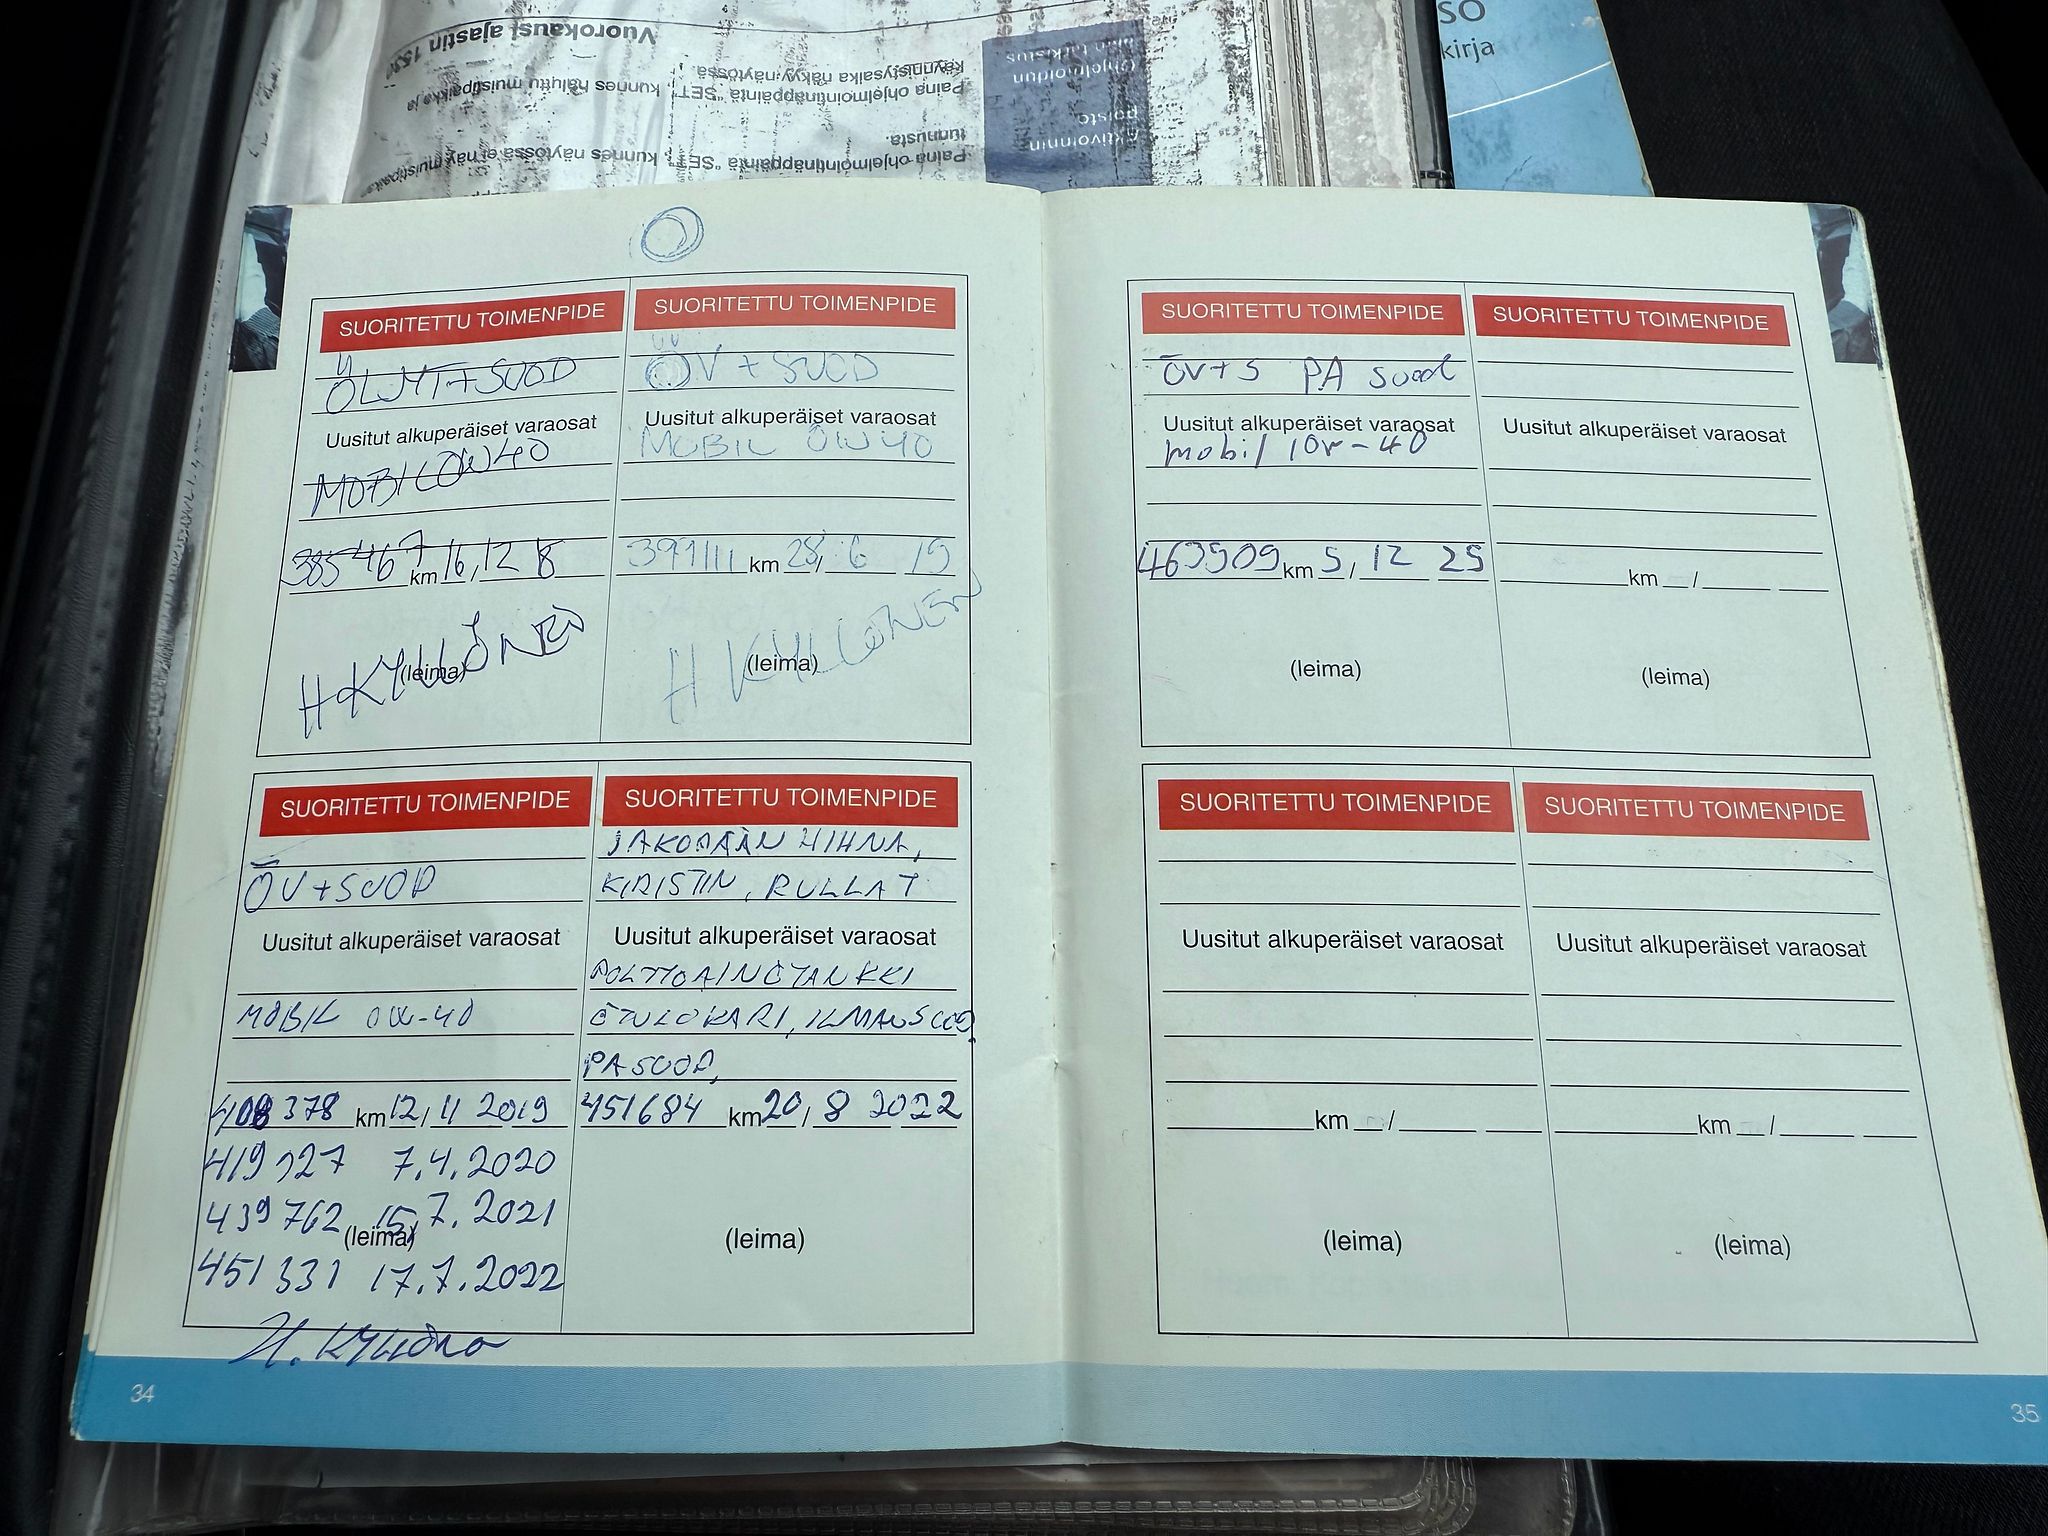 SO
kirja
Vuorokausi ajastin 1530
kunnes haluttu muistipaikka ja
Paina ohjelmointinäppäintä "SET"
käynnistysaika näkyy näytössä.
Ohjelmoidun
ajan tarkistus
kunnes näytössä ei näy muistipaikan
Paina ohjelmointinäppäintä "SET"
tunnusta.
poisto
SUORITETTU TOIMENPIDE
+ SUOD
Uusitut alkuperäiset varaosat
MOBIL 0W40
385467 km 16, 12 8
H KYLLÖNEN
(leima)
SUORITETTU TOIMENPIDE
ÖV + SUOD
Uusitut alkuperäiset varaosat
MOBIL 0W40
km 28, 6 19
H KYLLÖNEN
(leima)
SUORITETTU TOIMENPIDE
ÖV + SUOD
Uusitut alkuperäiset varaosat
MOBIL 0W-40
408 378 km 12 / 11 2019
419 327 7.4.2020
439 762 15,7. 2021
(leima)
451 331 17.7.2022
SUORITETTU TOIMENPIDE
JAKOPÄÄN HIHNA,
KIRISTIN, RULLAT
Uusitut alkuperäiset varaosat
POLTTOAINETANKKI
ETULOKARI, ILMANSUOD,
PA SUOD,
451684 km 20 / 8 2022
(leima)
H. Kyllönen
34
SUORITETTU TOIMENPIDE
ÖV+S PA suod
Uusitut alkuperäiset varaosat
mobil 10w-40
463909 km 5 / 12 25
(leima)
SUORITETTU TOIMENPIDE
Uusitut alkuperäiset varaosat
km /
(leima)
SUORITETTU TOIMENPIDE
Uusitut alkuperäiset varaosat
km /
(leima)
SUORITETTU TOIMENPIDE
Uusitut alkuperäiset varaosat
km /
(leima)
35